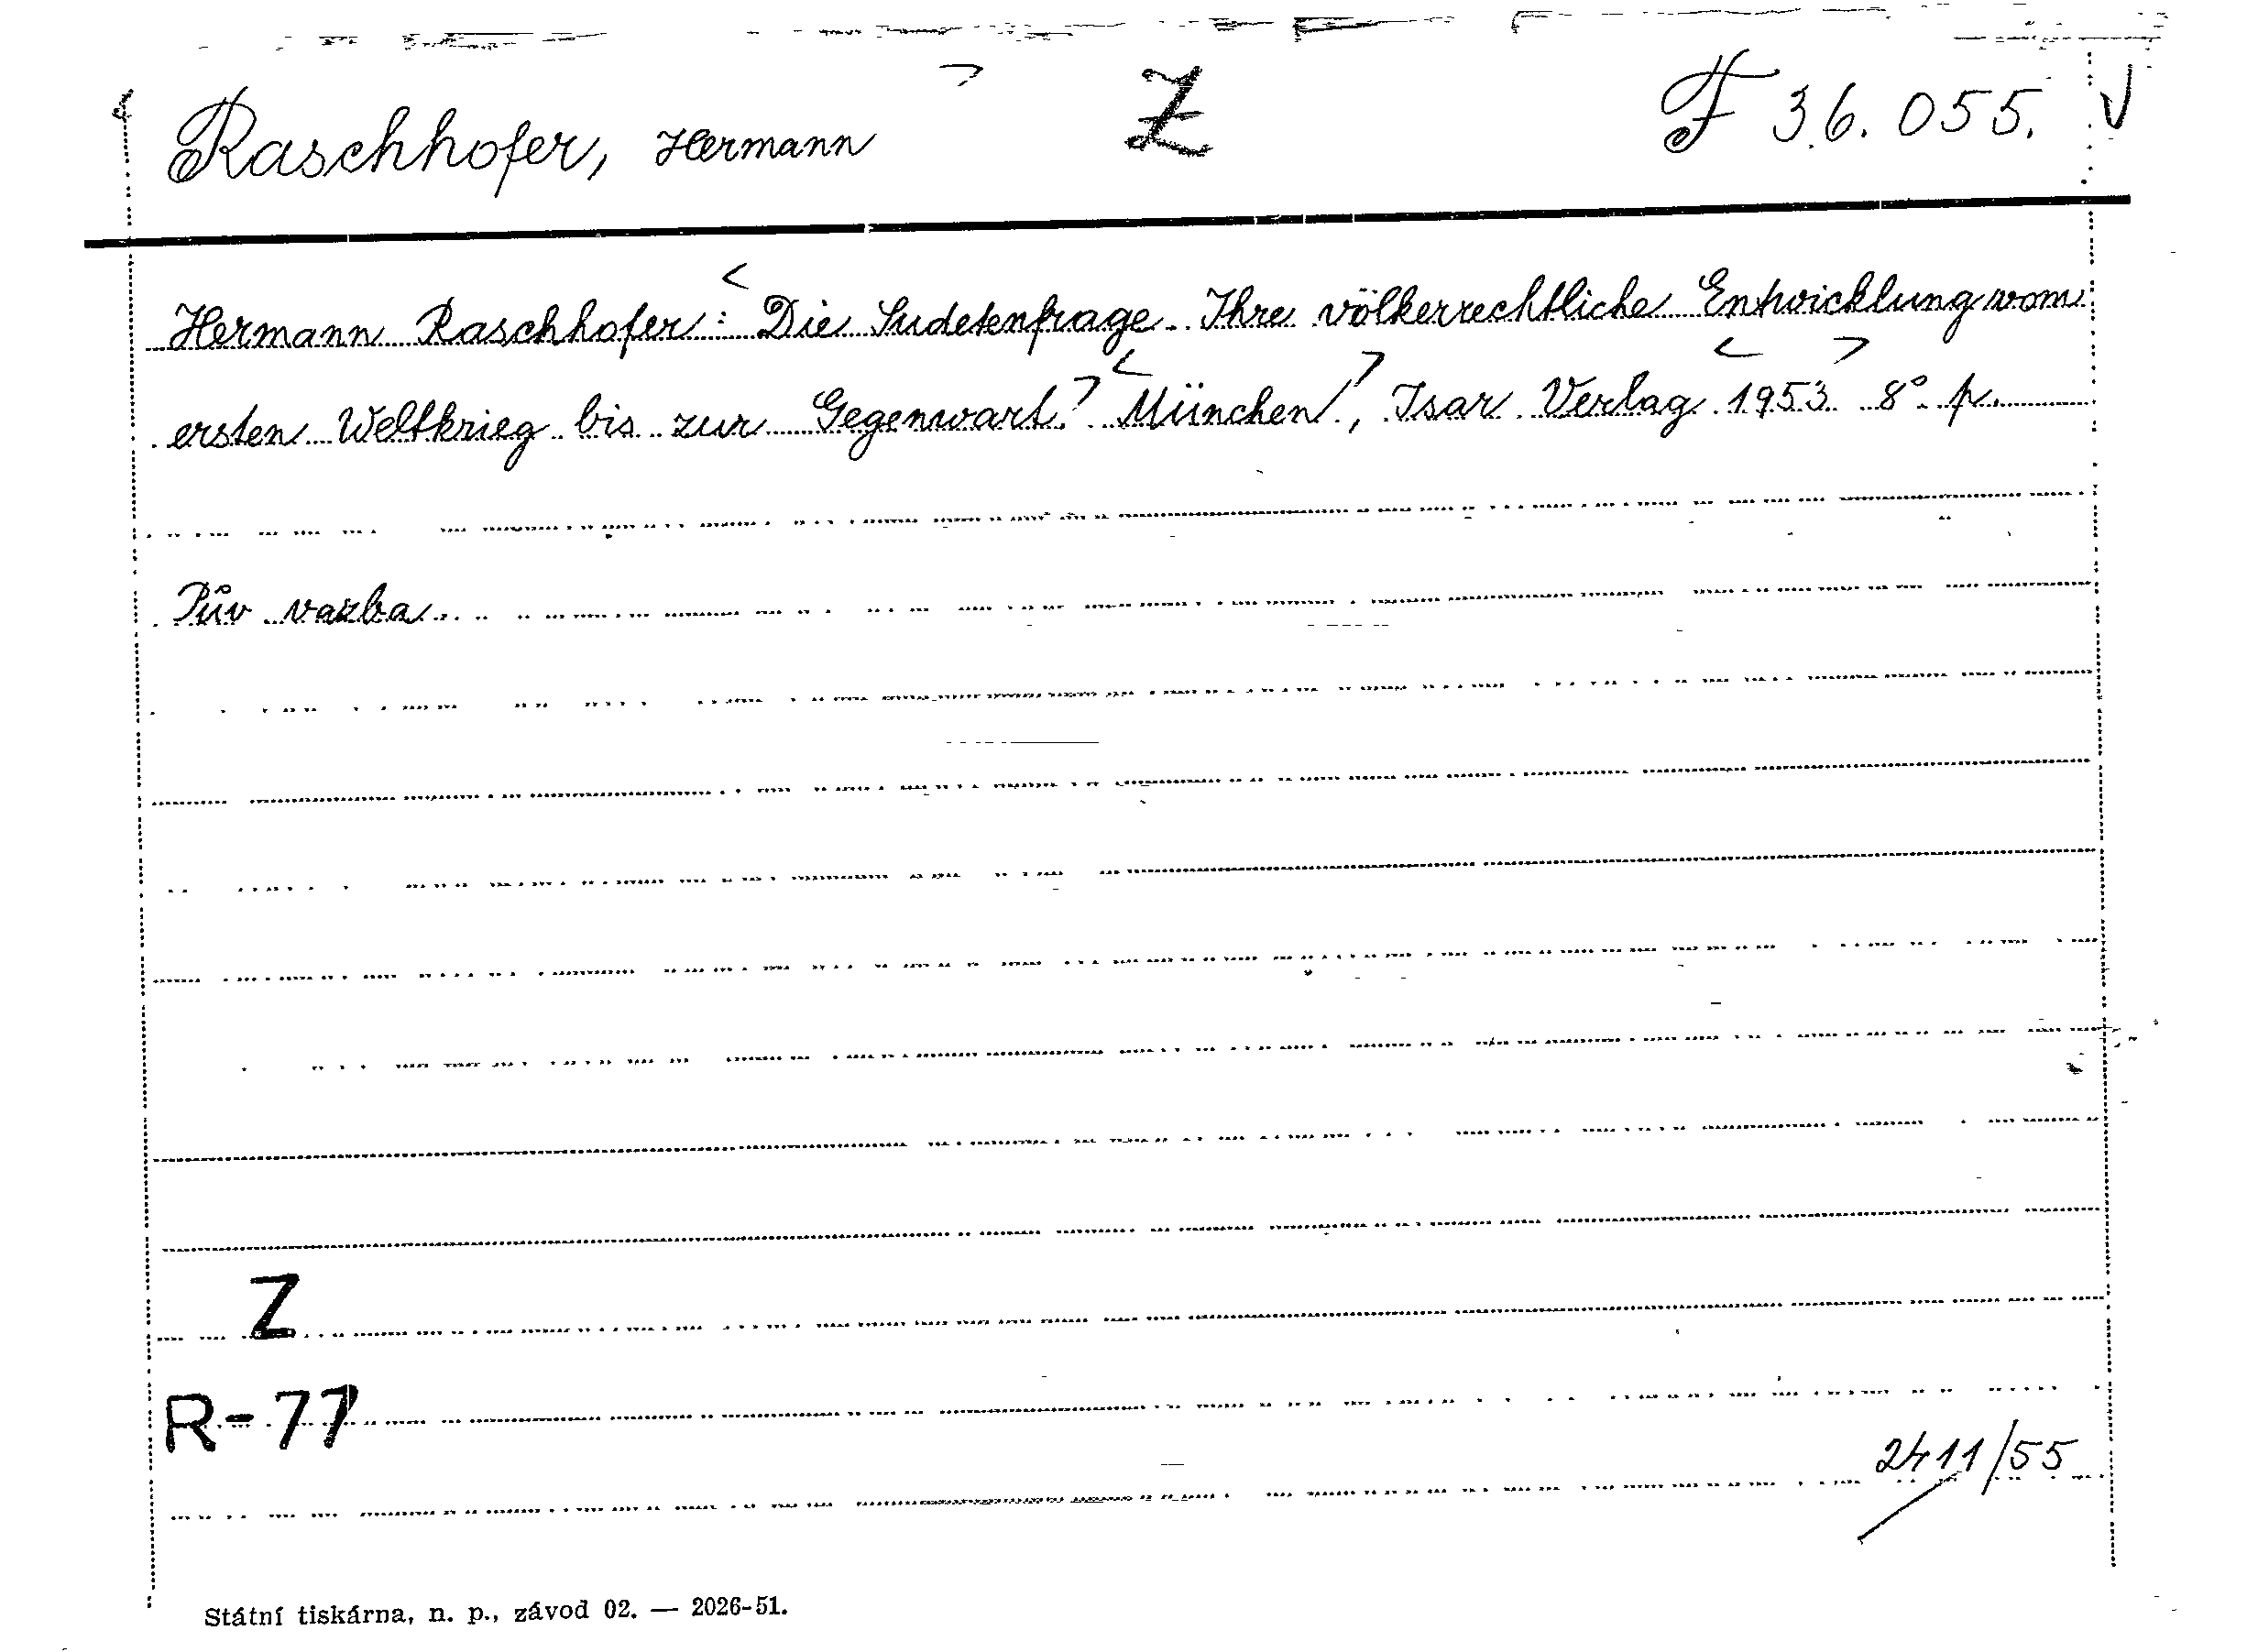 Raschhofer, Hermann Z F 36.055.
Hermann Raschhofer: Die Sudetenfrage. Ihre völkerrechtliche Entwicklung vom
ersten Weltkrieg bis zur Gegenwart. München, Isar Verlag 1953 8° p.
Pův vazba
Z
R-77
2411/55
Státní tiskárna, n. p., závod 02. — 2026-51.